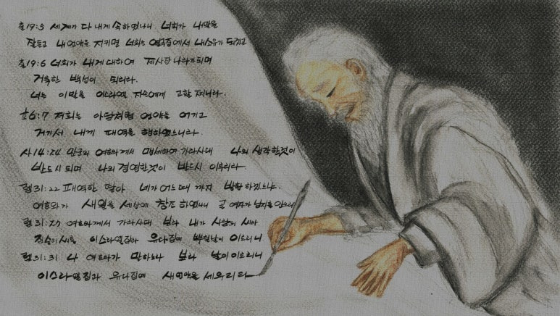 출19:5 세계가 다 내게 속하였나니 너희가 내 말을
잘 듣고 내 언약을 지키면 너희는 열국 중에서 내 소유가 되겠고
출19:6 너희가 내게 대하여 제사장 나라가 되며
거룩한 백성이 되리라.
너는 이 말을 이스라엘 자손에게 고할지니라.
호6:7 저희는 아담처럼 언약을 어기고
거기서 내게 패역을 행하였느니라.
사14:24 만군의 여호와께서 맹세하여 가라사대 나의 생각한 것이
반드시 되며 나의 경영한 것이 반드시 이루리라.
렘31:22 패역한 딸아 네가 어느 때까지 방황하겠느냐.
여호와가 새 일을 세상에 창조하였나니 곧 여자가 남자를 안으리라
렘31:27 여호와께서 가라사대 보라 내가 사람의 씨와
짐승의 씨를 이스라엘 집과 유다 집에 뿌릴 날이 이르리니
렘31:31 나 여호와가 말하노라 보라 날이 이르리니
이스라엘 집과 유다 집에 새 언약을 세우리라